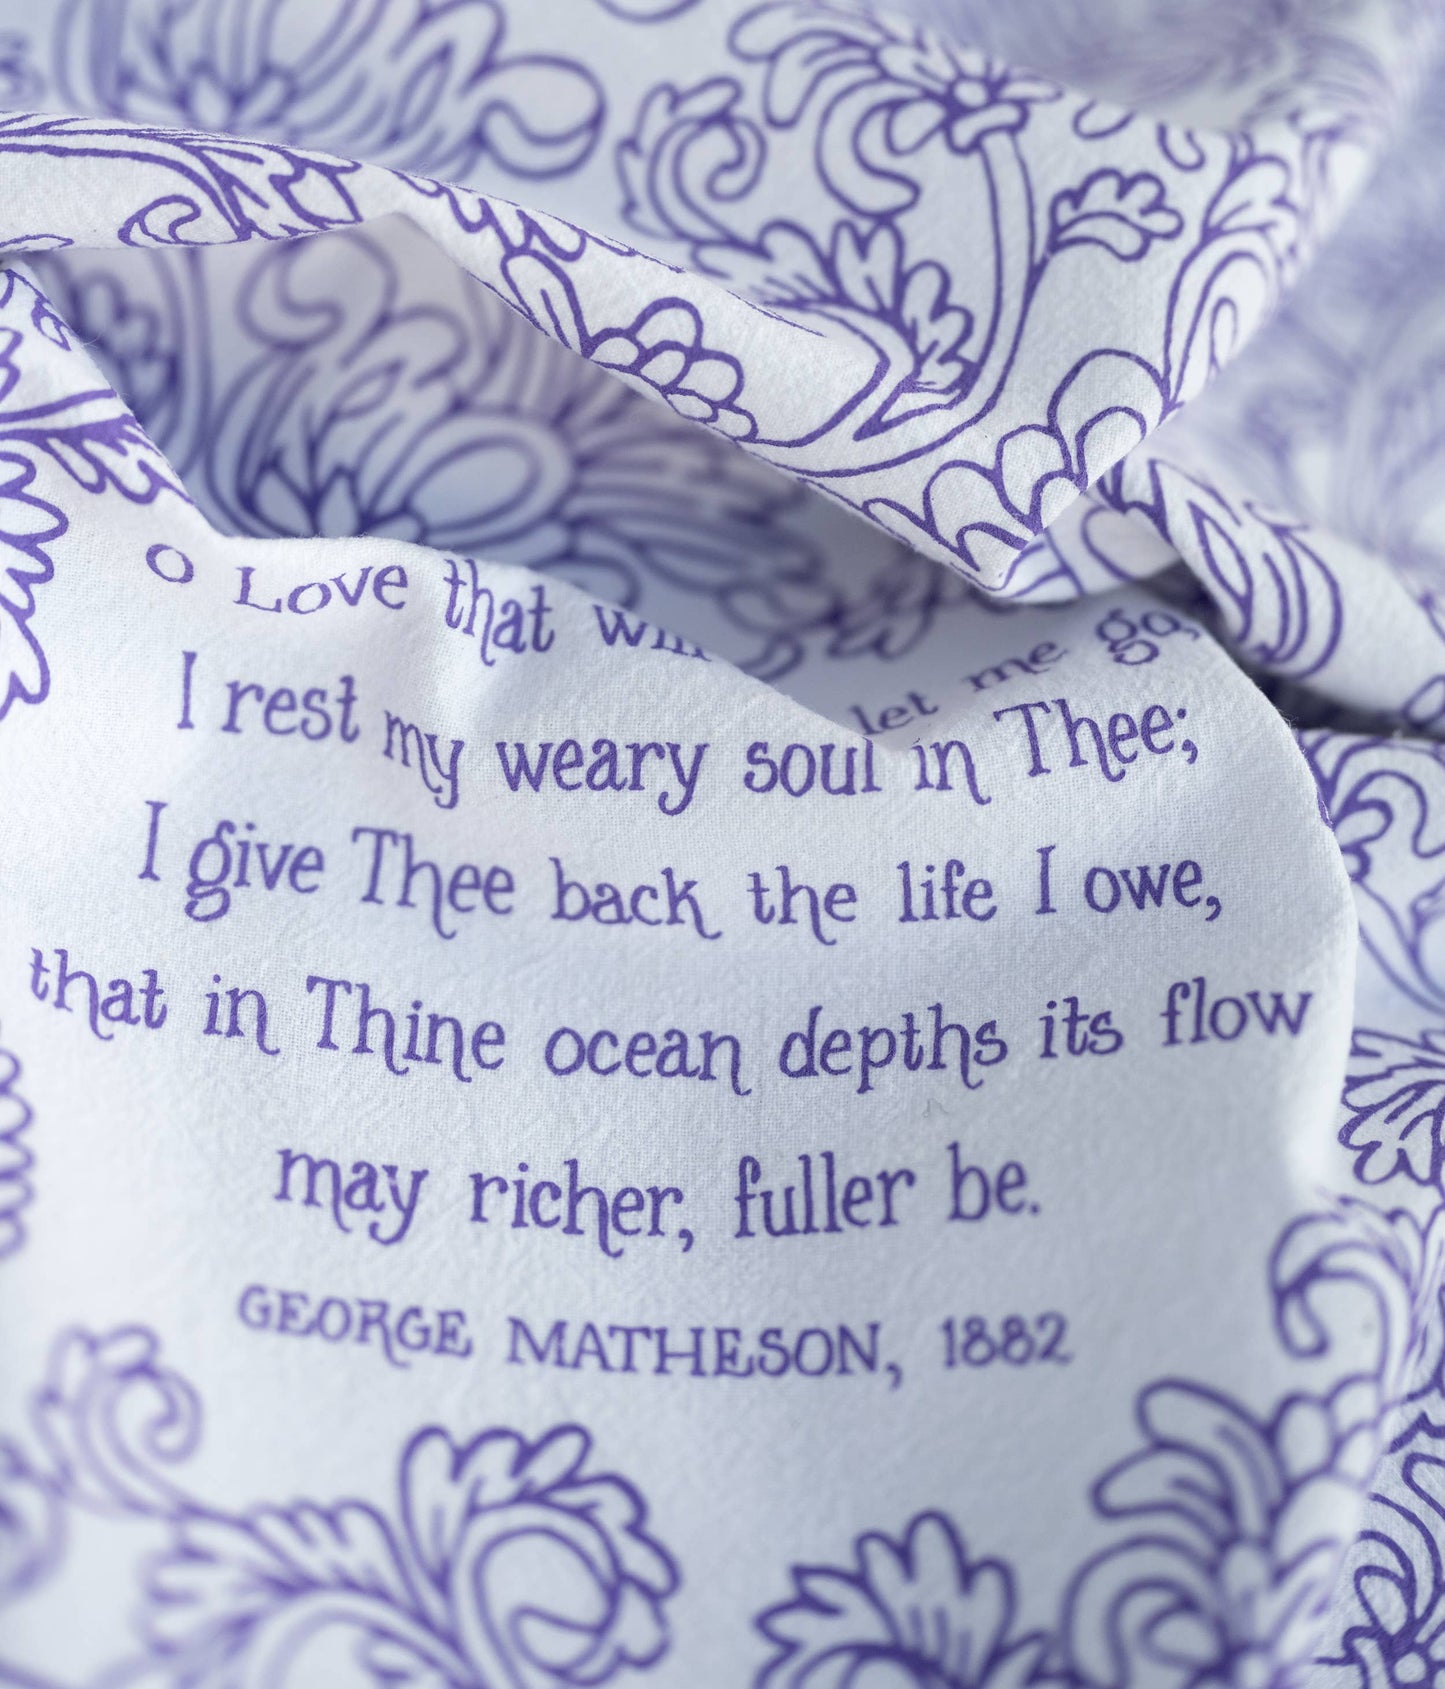 O Love that will let me go,
I rest my weary soul in Thee;
I give Thee back the life I owe,
that in Thine ocean depths its flow
may richer, fuller be.
GEORGE MATHESON, 1882